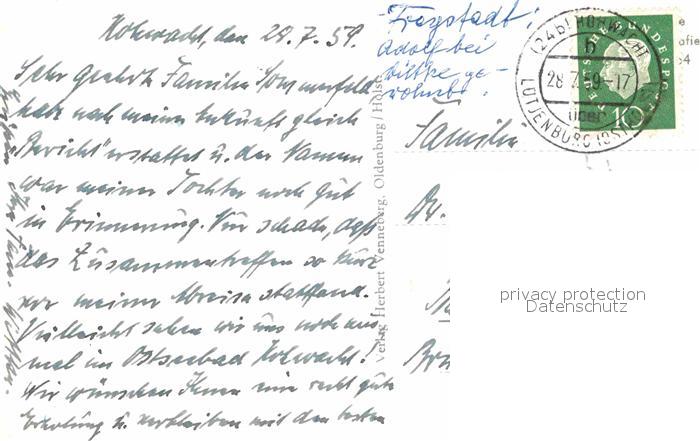 Hohwacht, den 28.7.59.
Sehr geehrte Familie Sommerfeld
habe nach meiner Ankunft gleich
Bericht erstattet u. der Namen
war meiner Tochter noch gut
in Erinnerung. Nur schade, daß
das Zusammentreffen so kurz
vor meiner Abreise stattfand.
Vielleicht sehen wir uns noch ein
mal im Ostseebad Hohwacht!
Wir wünschen Ihnen eine recht gute
Erholung u. verbleiben mit den besten
Grüßen Ihre Fam.
Verlag Herbert Venneberg, Oldenburg / Holst.
Freystadt:
Adolf bei
gewohnt!
(24b) HOHWACHT
b
28.7.59-17
über
LÜTJENBURG (OSTHOLST)
DEUTSCHE BUNDESPOST
10
Familie
Dr.
privacy protection
Datenschutz